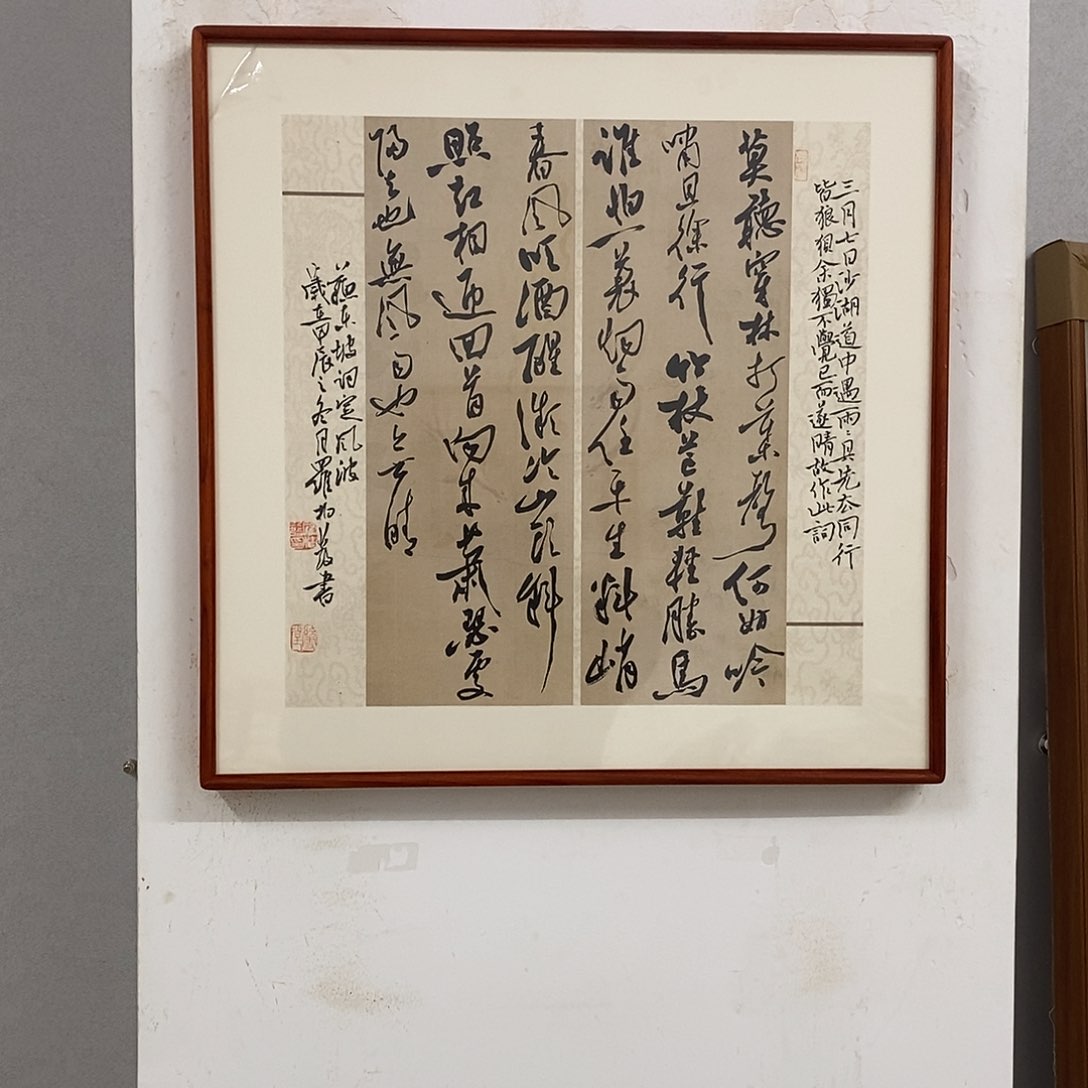 三月七日沙湖道中遇雨〻具先去同行
皆狼狽余獨不覺已而遂晴故作此詞
莫聽穿林打葉聲何妨吟
嘯且徐行竹杖芒鞵輕勝馬
誰怕一蓑烟雨任平生料峭
春風吹酒醒微冷山頭斜
照却相迎回首向來蕭瑟處
歸去也無風雨也无晴
蘇東坡詞定風波
歲在甲辰之冬月羅書